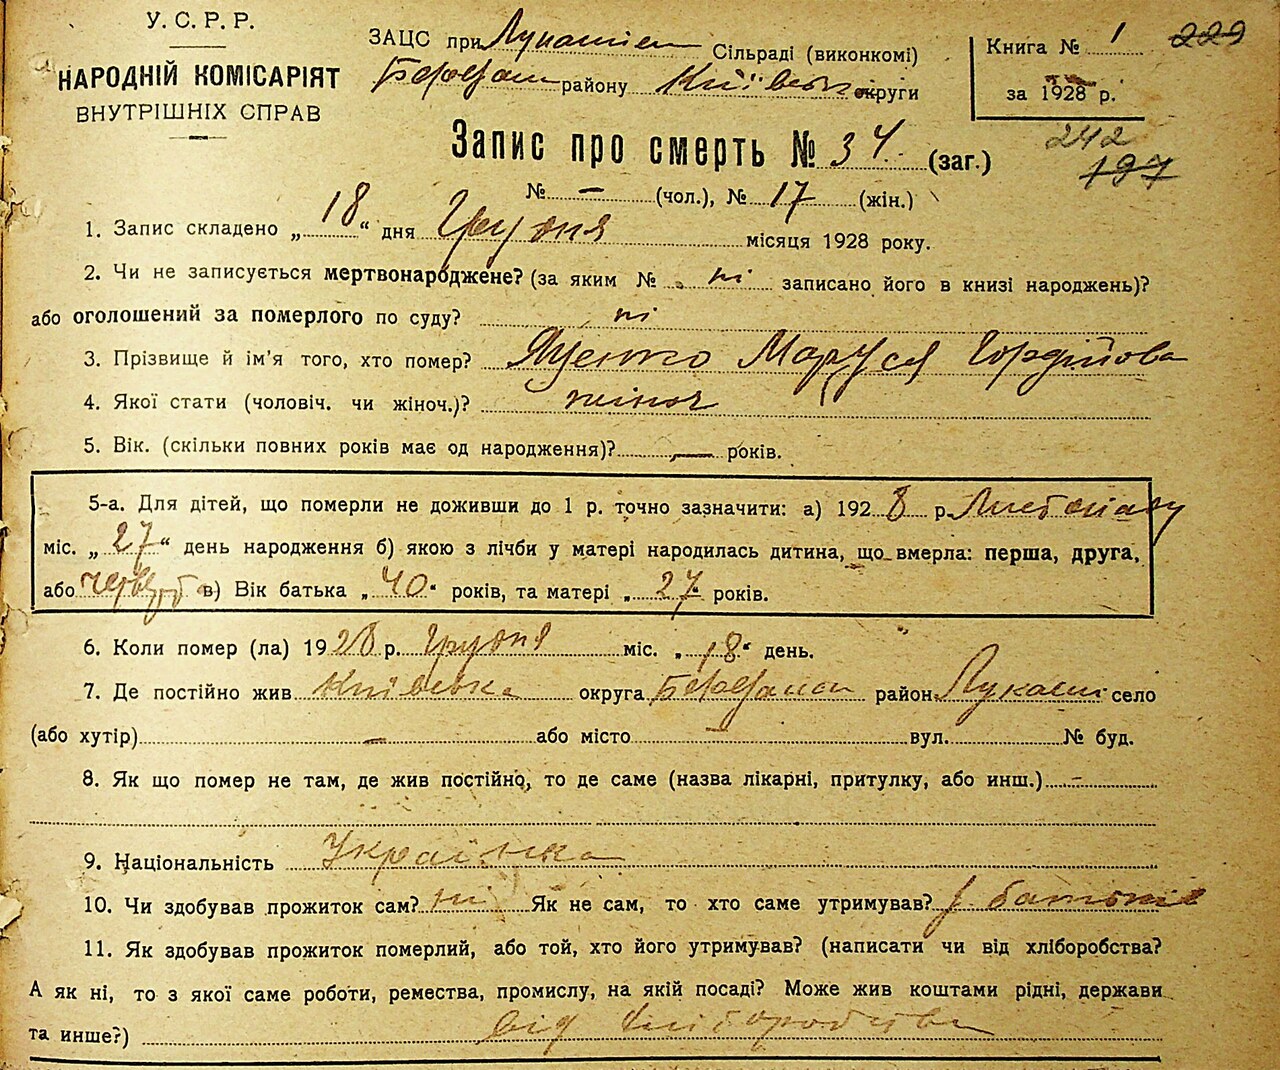 У. С. Р. Р.
НАРОДНІЙ КОМІСАРІЯТ
ВНУТРІШНІХ СПРАВ
ЗАЦС при Лукашівск Сільраді (виконкомі)
Березан району Київськ округи
Книга № 1 229
за 1928 р.
242
197
Запис про смерть № 34 (заг.)
№ — (чол.), № 17 (жін.)
1. Запис складено „ 18 “ дня Грудня місяця 1928 року.
2. Чи не записується мертвонароджене? (за яким № ні записано його в книзі народжень)?
або оголошений за померлого по суду? ні
3. Прізвище й ім'я того, хто помер? Яценко Маруся Гордійова
4. Якої стати (чоловіч. чи жіноч.)? жіноч
5. Вік. (скільки повних років має од народження)? — років.
5-а. Для дітей, що померли не доживши до 1 р. точно зазначити: а) 1928 р. Листопаду
міс. „ 27 “ день народження б) якою з лічби у матері народилась дитина, що вмерла: перша, друга,
або в) Вік батька „ 40 “ років, та матері „ 27 років.
6. Коли помер (ла) 1928 р. Грудня міс. „ 18 “ день.
7. Де постійно жив Київська округа Березанськ район Лукаші село
(або хутір) — або місто — вул. № буд.
8. Як що помер не там, де жив постійно, то де саме (назва лікарні, притулку, або инш.) —
9. Національність Українка
10. Чи здобував прожиток сам? ні Як не сам, то хто саме утримував? у батьків
11. Як здобував прожиток померлий, або той, хто його утримував? (написати чи від хліборобства?
А як ні, то з якої саме роботи, ремества, промислу, на якій посаді? Може жив коштами рідні, держави
та инше?) від хліборобства